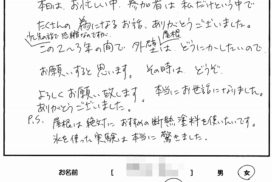 本日は、お忙しい中、参加者は私だけという中で
たくさんの為になるお話、ありがとうございました。
この2~3年の間で、外壁はどうにかしたいので
屋根
お願いすると思います。その時は、どうぞ
よろしくお願い致します。本当にお世話になりました。
ありがとうございました。
P.S. 屋根は絶対に、おすすめの断熱塗料を使いたいです。
氷を使った実験は本当に驚きました。
お名前 [ ] 男 女